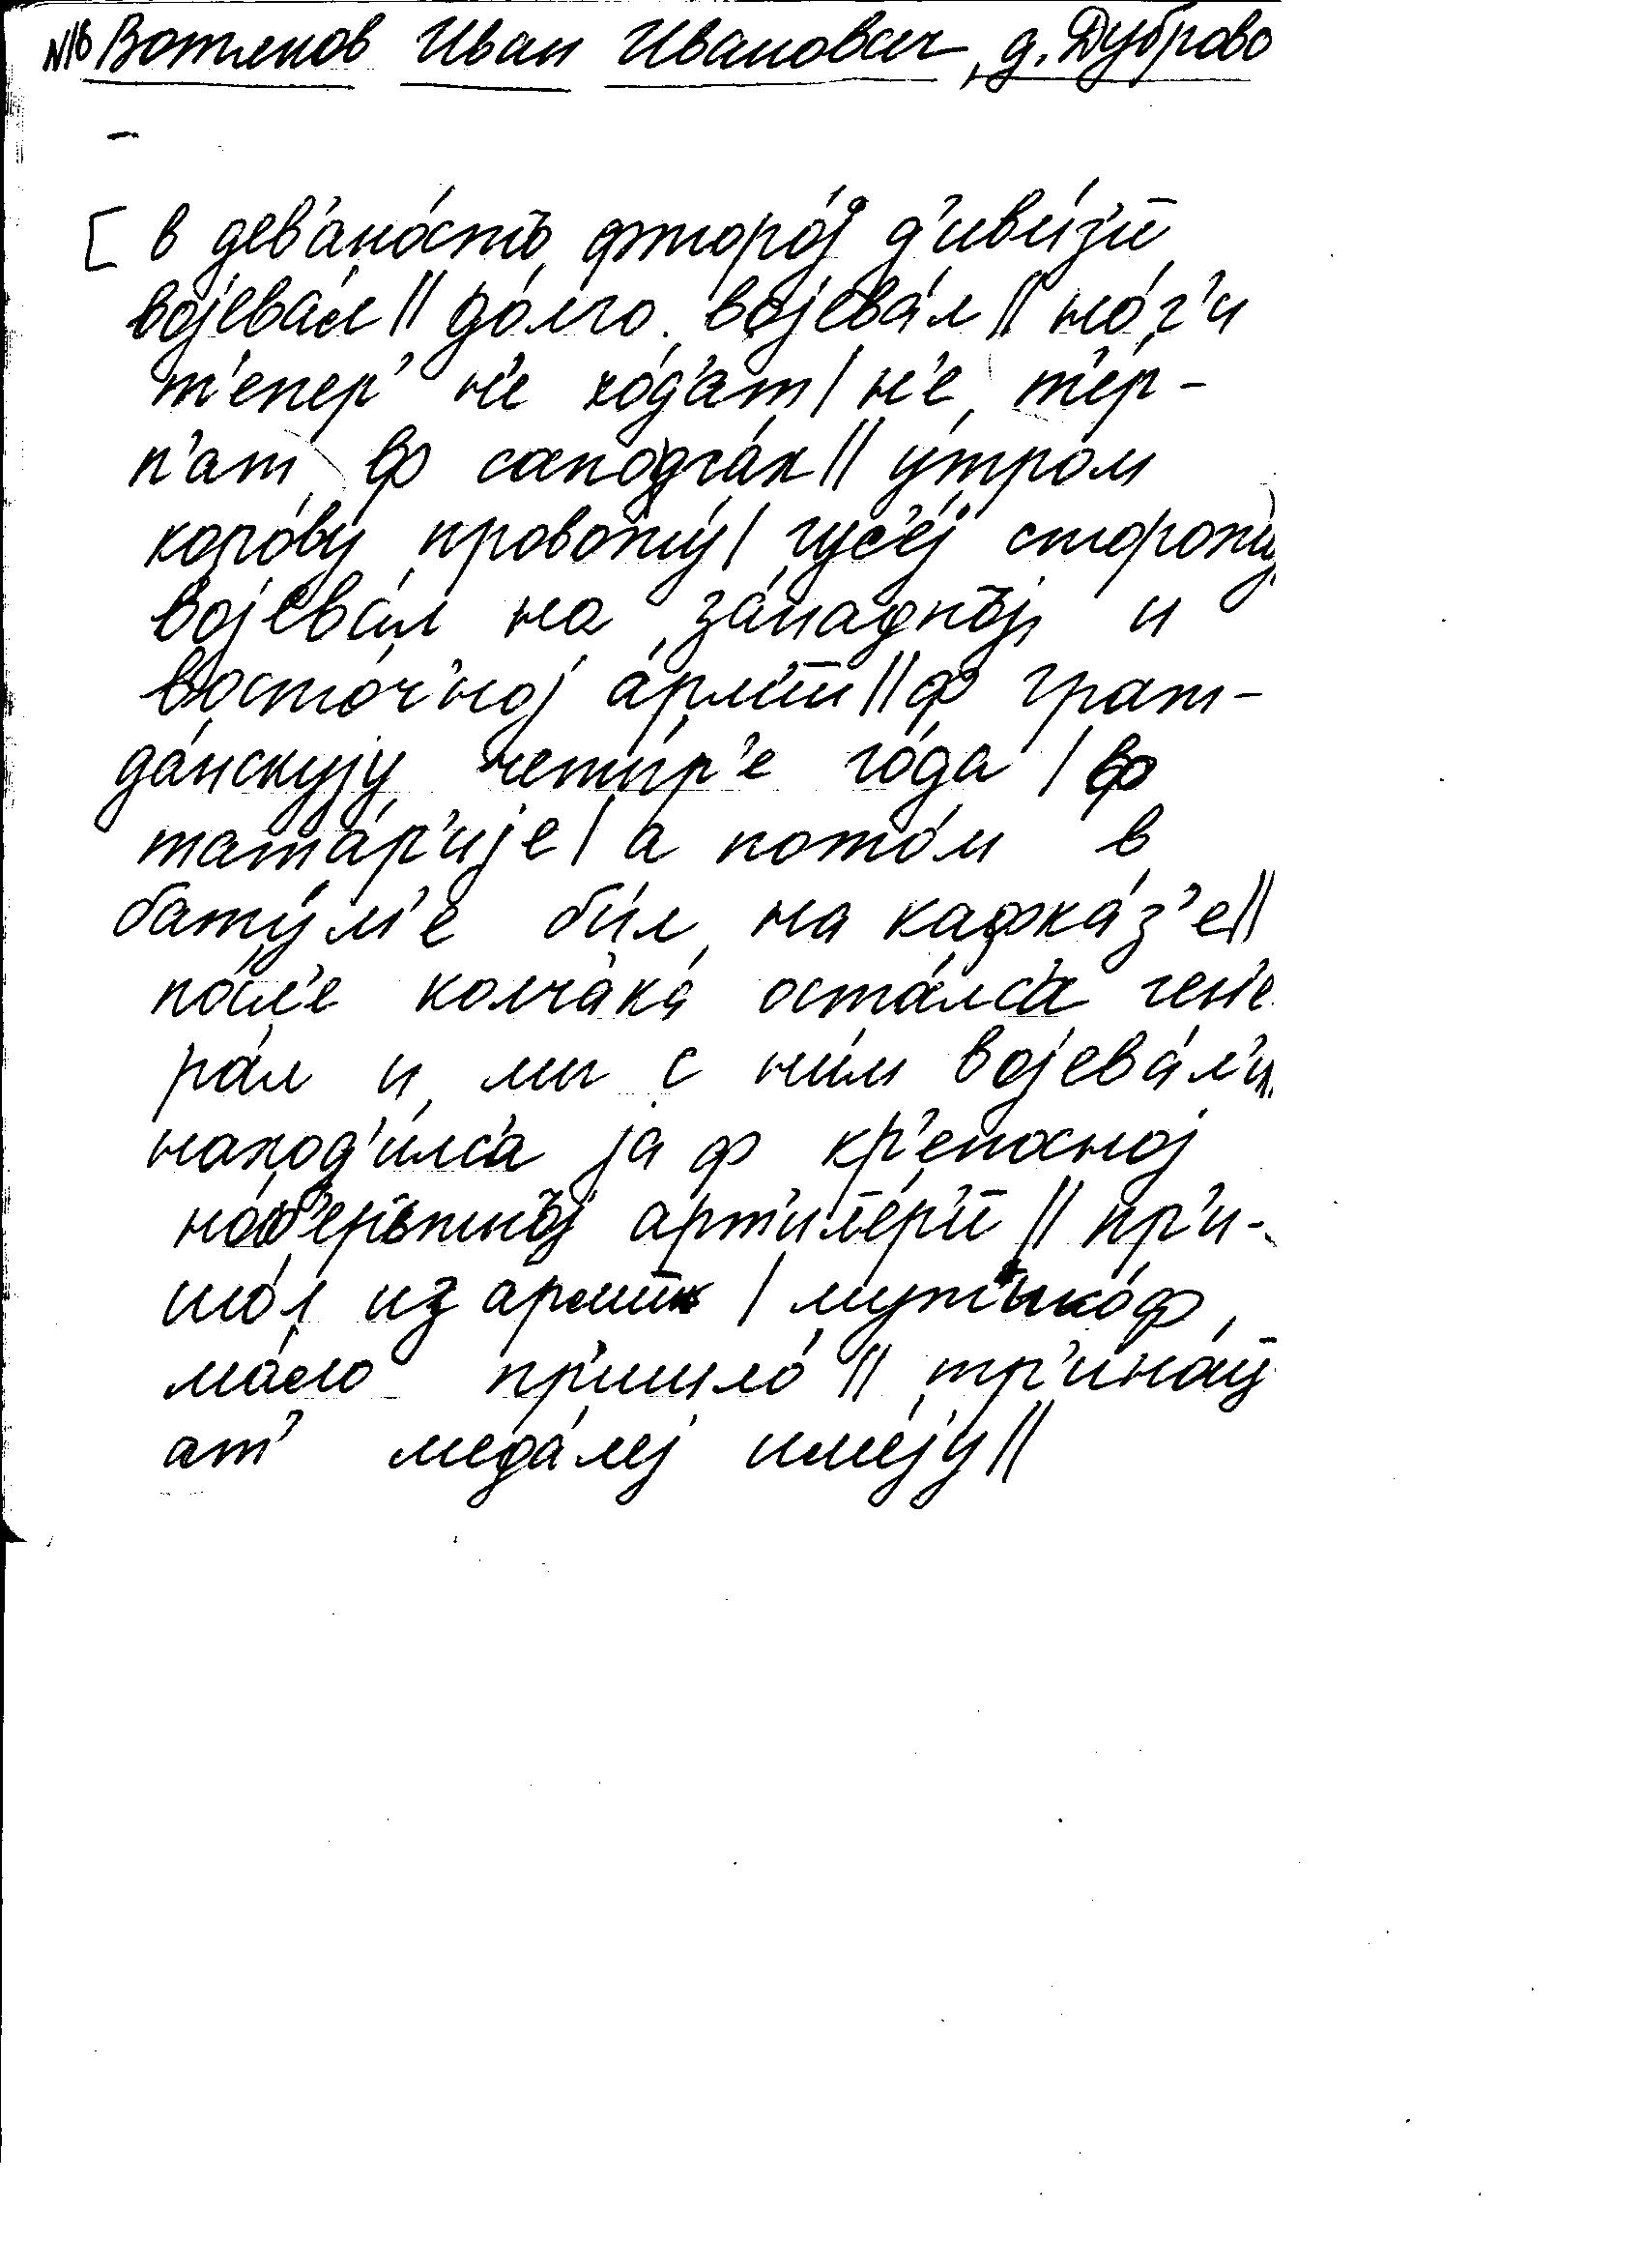 N16 Вотляков Иван Иванович, д. Дуброво
[ в дев'ано́стъ фторо́j д'иви́з'ии
воjева́л || до́лго воjева́л || но́г'и
т'епер' н'е хо́д'ат | н'е т'е́р-
п'ат в сапогха́х || у́тром
коро́ву провожу́ | гус'е́j сторожу́
воjева́л на за́паднъj и
восто́ч'ноj а́рм'ии || ф граж-
да́нскуjу четы́р'е го́да | в
тата́р'иjе | а пото́м в
бату́м'е бы́л на кафка́з'е ||
по́сл'е колчака́ оста́лс'а ген'е
ра́л и мы с н'и́м воjева́л'и
наход'и́лс'а jа ф кр'е́посноj
на́б'ережнъj арт'ил'е́р'ии || пр'и-
шо́л из арм'ии | мужыко́ф
ма́ло пр'ишло́ || тр'ина́ц
ат' меда́леj име́jу ||